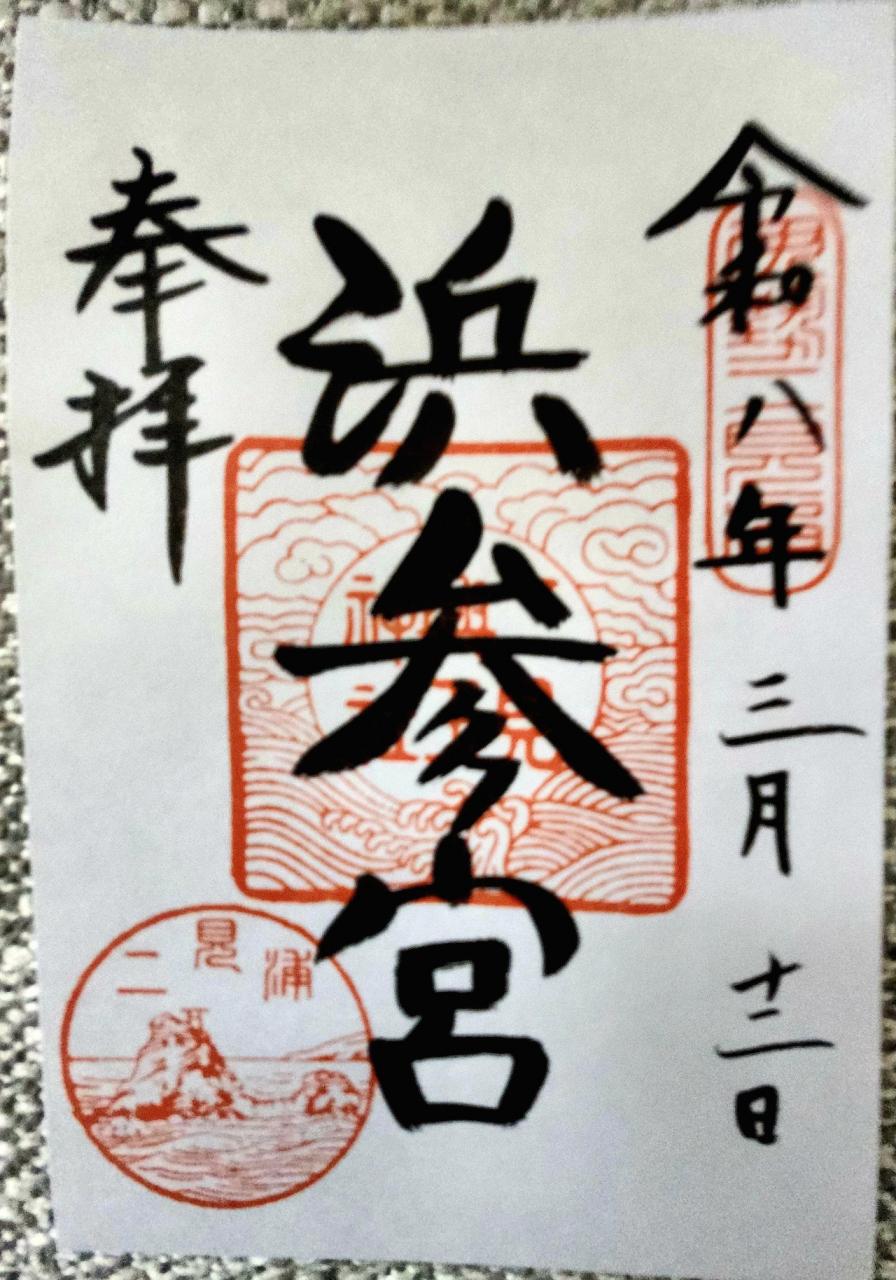 令和八年三月十二日
浜参宮
奉拝
二見浦